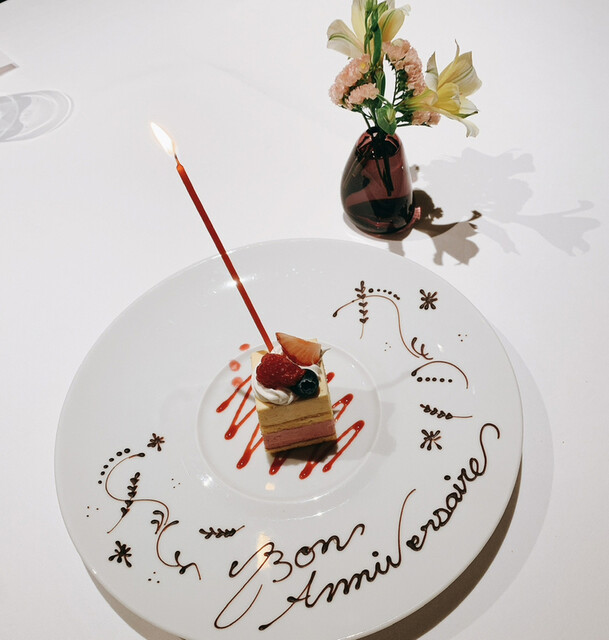 Bon
Anniversaire